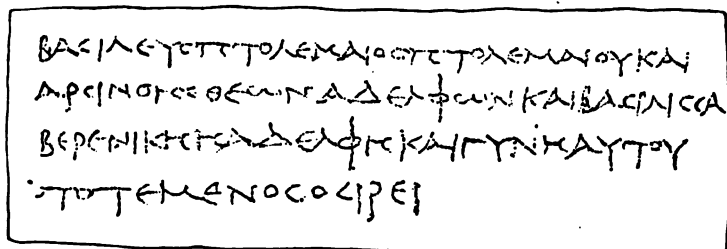 ΒΑСΙΛΕΥСΠΤΟΛΕΜΑΙΟСΠΤΟΛΕΜΑΙΟΥΚΑΙ
ΑΡСΙΝΟΗСΘΕωΝΑΔΕΛΦωΝΚΑΙΒΑСΙΛΙССΑ
ΒΕΡΕΝΙΚΗΗΑΔΕΛΦΗΚΑΙΓΥΝΗΑΥΤΟΥ
ΤΟΤΕΜΕΝΟСΟСΙΡΕΙ